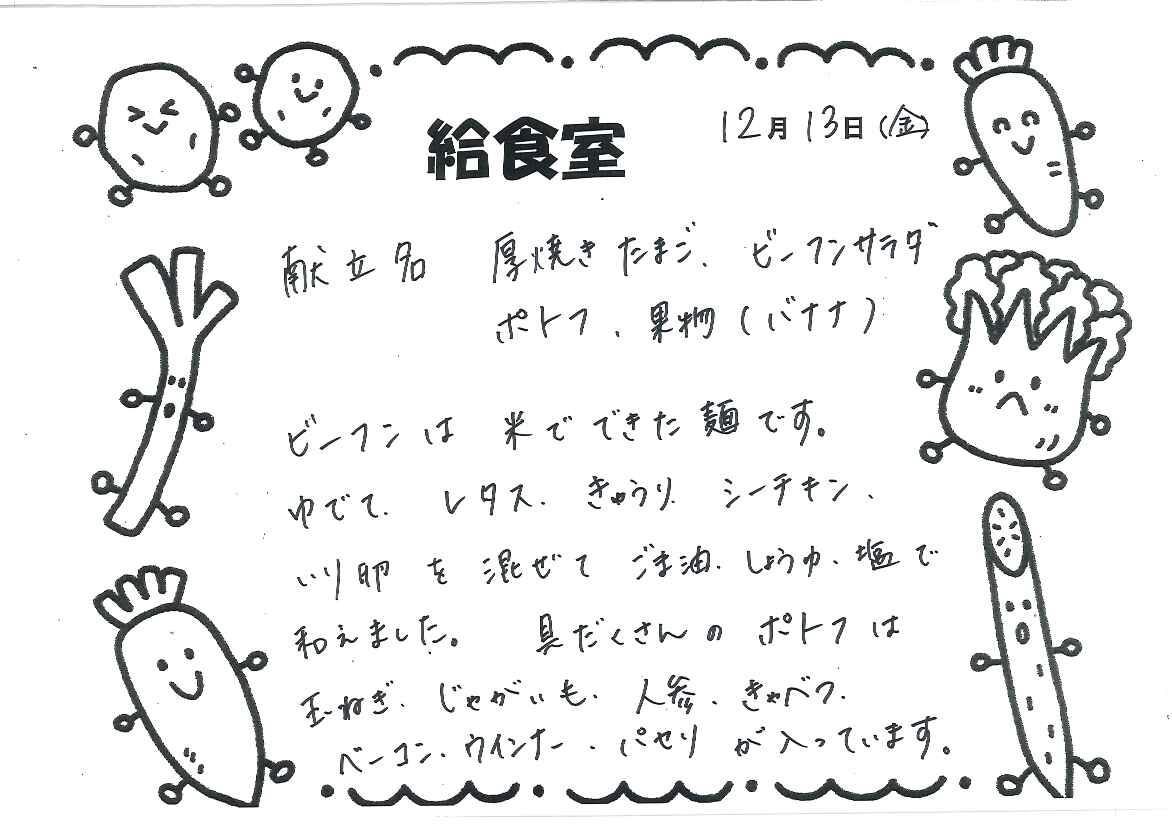 給食室
12月13日(金)
献立名 厚焼きたまご、ビーフンサラダ
ポトフ、果物(バナナ)
ビーフンは 米で できた 麺です。
ゆでて、レタス、きゅうり、シーチキン、
いり卵 を 混ぜて ごま油、しょうゆ、塩で
和えました。 具だくさんの ポトフは
玉ねぎ、じゃがいも、人参、きゃべつ、
ベーコン、ウインナー、パセリ が入っています。